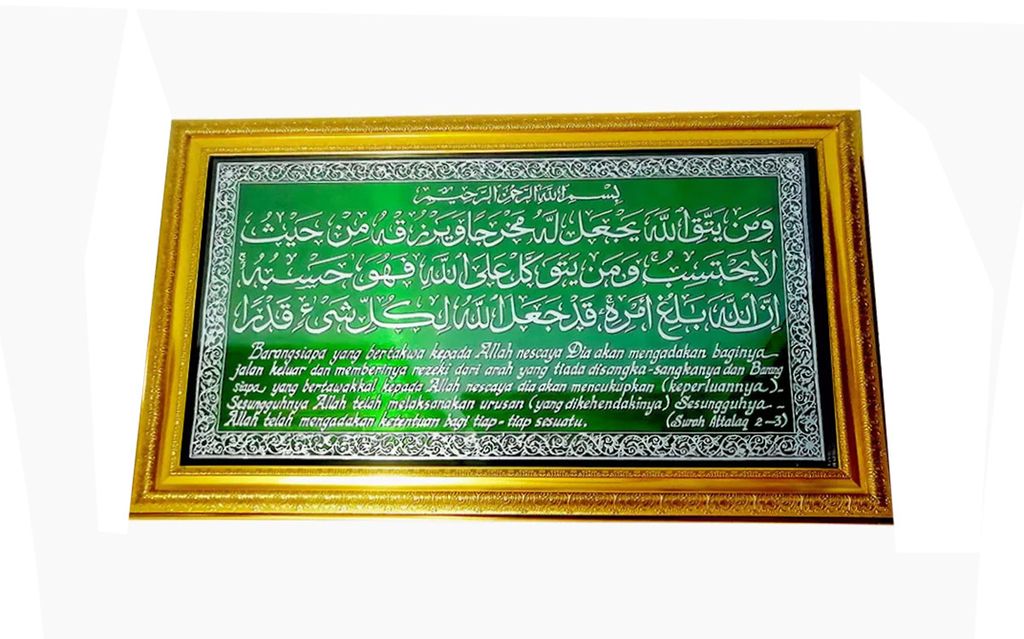 بِسْمِ اللهِ الرَّحْمٰنِ الرَّحِيْمِ
وَمَن يَتَّقِ اللهَ يَجْعَل لَّهُ مَخْرَجًا وَيَرْزُقْهُ مِنْ حَيْثُ
لَا يَحْتَسِبُ ۚ وَمَن يَتَوَكَّلْ عَلَى اللهِ فَهُوَ حَسْبُهُ ۚ
إِنَّ اللهَ بَالِغُ أَمْرِهِ ۚ قَدْ جَعَلَ اللهُ لِكُلِّ شَيْءٍ قَدْرًا
Barangsiapa yang bertakwa kepada Allah nescaya Dia akan mengadakan baginya
jalan keluar dan memberinya rezeki dari arah yang tiada disangka-sangkanya dan Barang
siapa yang bertawakkal kepada Allah nescaya dia akan mencukupkan (keperluannya).
Sesungguhnya Allah telah melaksanakan urusan (yang dikehendakinya) Sesungguhya -
Allah telah mengadakan ketentuan bagi tiap-tiap sesuatu. (Surah Attalaq 2-3)